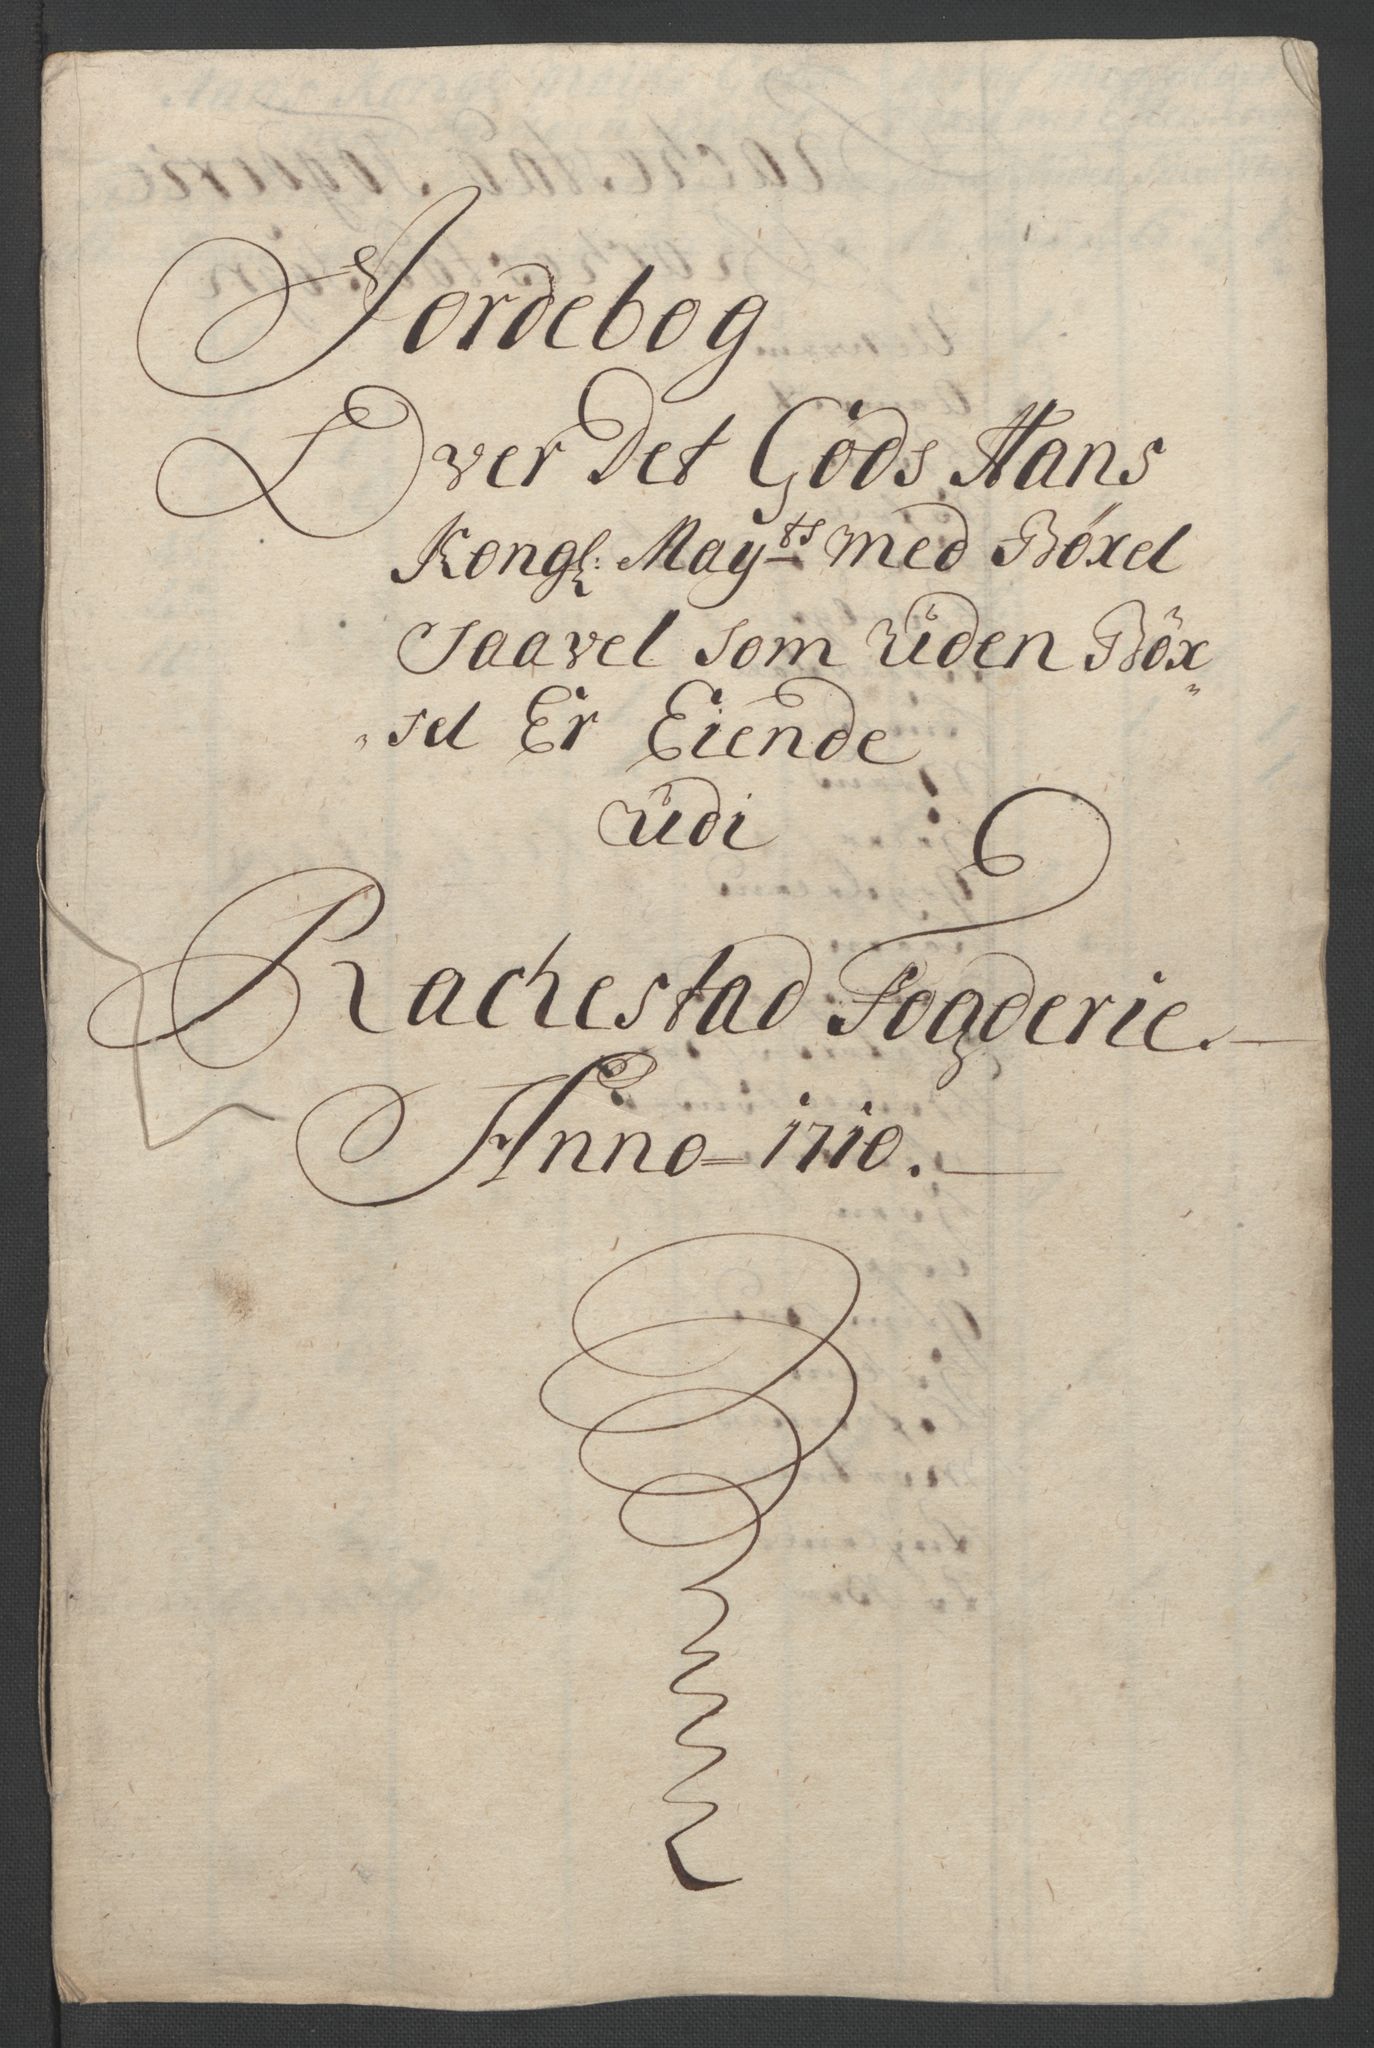 Jordebog
Over Det Gods Hans
Kongl: Mayts med Böxel
Saavel som uden Böx
sel Er Eiende
udi
Rachestad Fogderie.
Anno 1710.